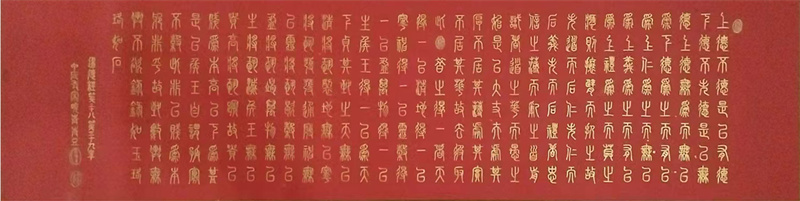 上德不德是㠯有德
下德不失德是㠯無
德上德無為而無㠯
為下德為之而有㠯
為上仁為之而無㠯
為上義為之而有㠯
為上禮為之而莫之
應則攘臂而扔之故
失道而后德失德而
后仁失仁而后義失
義而后禮夫禮者忠
信之薄而亂之首前
識者道之華而愚之
始是㠯大丈夫處其
厚不居其薄處其實
不居其華故去彼取
此 昔之得一者天
得一㠯清地得一㠯
寧神得一㠯靈谷得
一㠯盈萬物得一㠯
生侯王得一㠯為天
下貞其致之天無㠯
清將恐裂地無㠯寧
將恐發神無㠯靈將
恐歇谷無㠯盈將恐
竭萬物無㠯生將恐
滅侯王無㠯貴高將
恐蹶故貴㠯賤為本
高㠯下為基是㠯侯
王自謂孤寡不穀
此非㠯賤為本
邪非乎故致數輿無
輿不欲琭琭如玉珞
珞如石